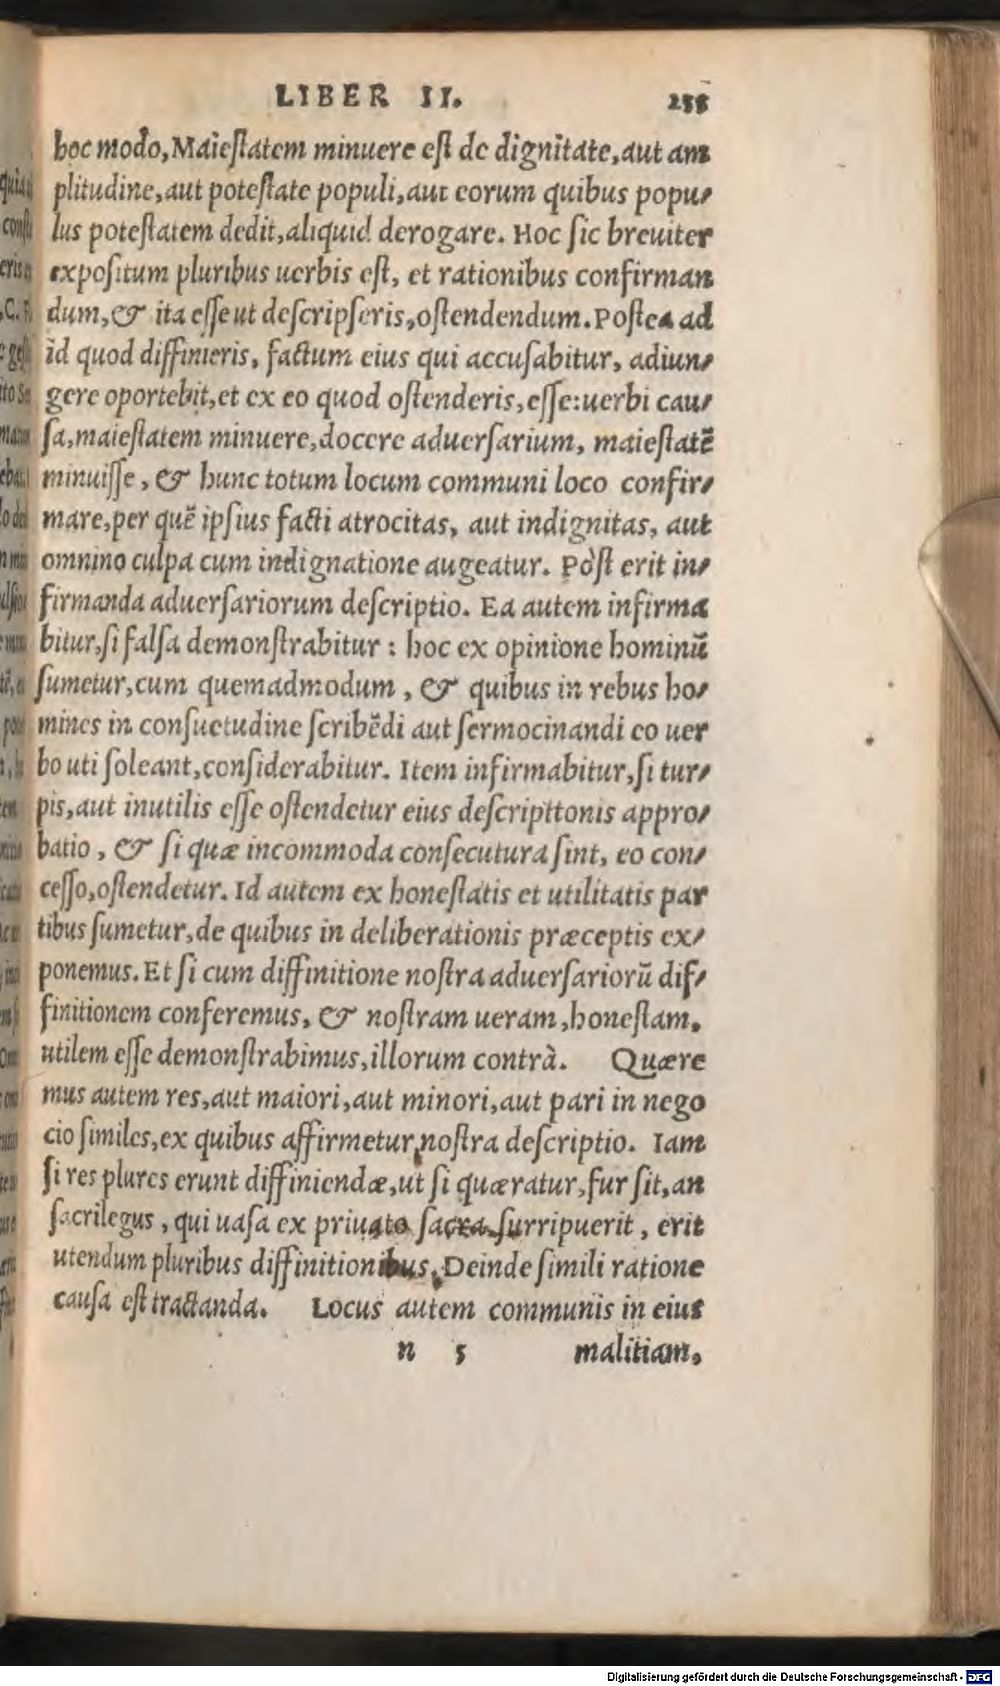 LIBER II.
hoc modo, Maiestatem minuere est de dignitate, aut am
plitudine, aut potestate populi, aut eorum quibus popu-
lus potestatem dedit, aliquid derogare. Hoc sic breuiter
expositum pluribus uerbis est, et rationibus confirman
dum, & ita esse ut descripseris, ostendendum. Postea ad
id quod diffinieris, factum eius qui accusabitur, adiun-
gere oportebit, et ex eo quod ostenderis, esse: uerbi cau-
sa, maiestatem minuere, docere aduersarium, maiestatē
minuisse, & hunc totum locum communi loco confir-
mare, per quē ipsius facti atrocitas, aut indignitas, aut
omnino culpa cum indignatione augeatur. Pòst erit in-
firmanda aduersariorum descriptio. Ea autem infirma
bitur, si falsa demonstrabitur: hoc ex opinione hominū
sumetur, cum quemadmodum, & quibus in rebus ho-
mines in consuetudine scribēdi aut sermocinandi eo uer
bo uti soleant, considerabitur. Item infirmabitur, si tur-
pis, aut inutilis esse ostendetur eius descripttonis appro-
batio, & si quæ incommoda consecutura sint, eo con-
cesso, ostendetur. Id autem ex honestatis et utilitatis par
tibus sumetur, de quibus in deliberationis præceptis ex-
ponemus. Et si cum diffinitione nostra aduersariorū dif-
finitionem conferemus, & nostram ueram, honestam,
utilem esse demonstrabimus, illorum contrà. Quære
mus autem res, aut maiori, aut minori, aut pari in nego
cio similes, ex quibus affirmetur nostra descriptio. Iam
si res plures erunt diffiniendæ, ut si quæratur, fur sit, an
sacrilegus, qui uasa ex priuato sacra surripuerit, erit
utendum pluribus diffinitionibus. Deinde simili ratione
causa est tractanda. Locus autem communis in eius
n 5 malitiam,
Digitalisierung gefördert durch die Deutsche Forschungsgemeinschaft - DFG